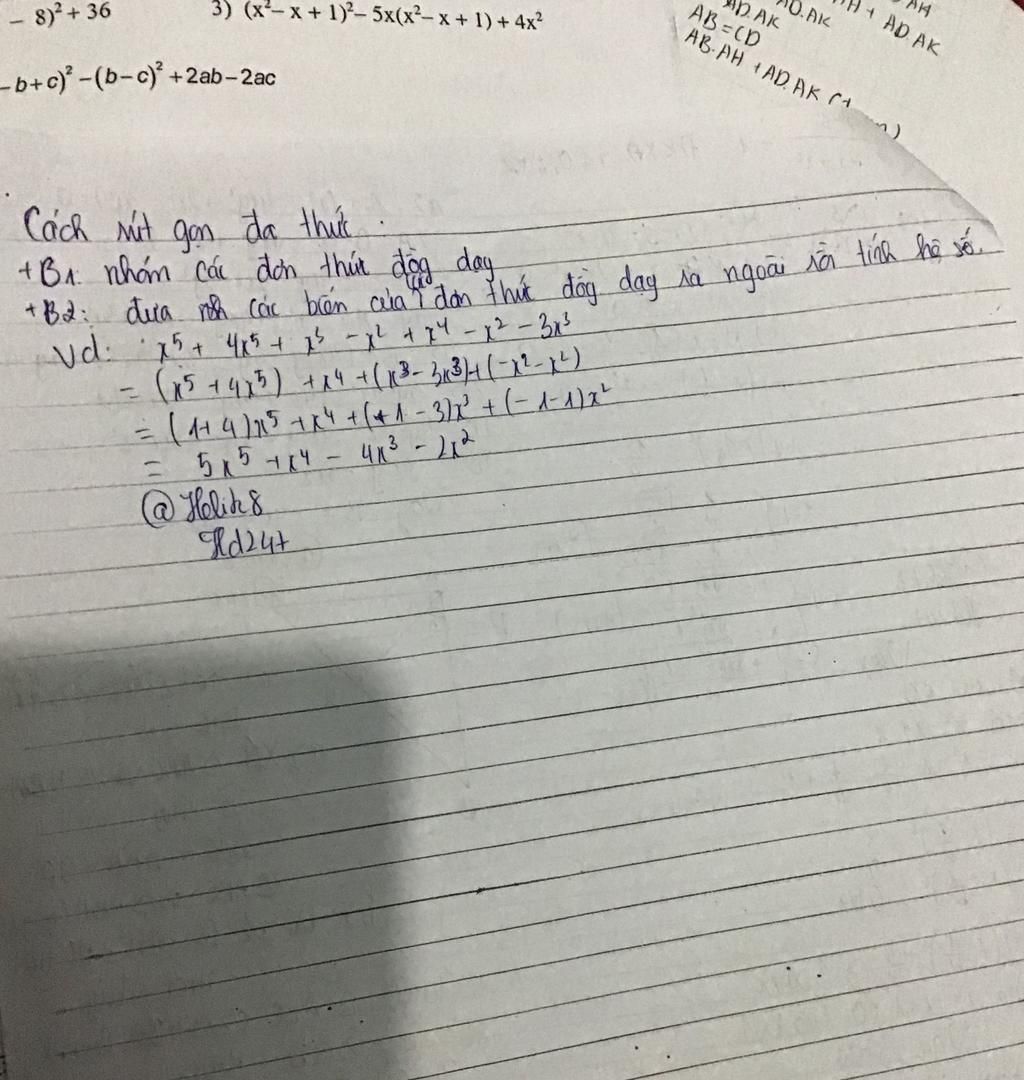 - 8)² + 36
3) (x² – x + 1)² – 5x(x² – x + 1) + 4x²
– b+c)² – (b – c)² + 2ab – 2ac
AD.AK
AB = CD
AB.AH + AD.AK
Cách rút gọn đa thức.
+B1: nhóm các đơn thức đồg dạy
+B2: đưa các biến của các đơn thức đồg dạy ra ngoài rồi tính hệ số.
Vd: x⁵ + 4x⁵ + x³ - x² + x⁴ - x² - 3x³
= (x⁵ + 4x⁵) + x⁴ + (x³ - 3x³) + (-x² - x²)
= (1+4)x⁵ + x⁴ + (+1 - 3)x³ + (-1-1)x²
= 5x⁵ + x⁴ - 4x³ - 2x²